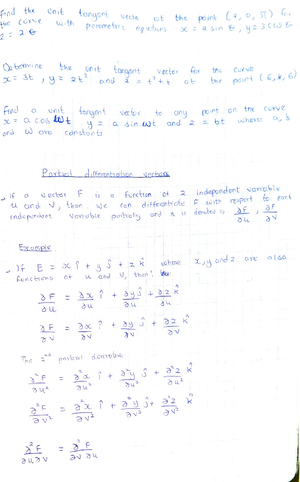 Find the unit tangent vector at the point (2, 0, π) for
the curve with parametric equations x = 2 sin θ, y = 3 cos θ
z = 2 θ
Determine the unit tangent vector for the curve
x = 3t, y = 2t² and z = t² + t at the point (6, 8, 6)
Find a unit tangent vector to any point on the curve
x = a cos wt y = a sin wt and z = bt where a, b
and w are constants
Partial differentiation vectors
- if a vector F is a function of 2 independent variable
u and v, then we can differentiate F with respect to each
independent variable partially and is denoted ∂F/∂u, ∂F/∂v
Example
- If F = x î + y ĵ + z k̂ where x, y and z are also
functions of u and v, then;
∂F/∂u = ∂x/∂u î + ∂y/∂u ĵ + ∂z/∂u k̂
∂F/∂v = ∂x/∂v î + ∂y/∂v ĵ + ∂z/∂v k̂
The 2nd partial derivative
∂²F/∂u² = ∂²x/∂u² î + ∂²y/∂u² ĵ + ∂²z/∂u² k̂
∂²F/∂v² = ∂²x/∂v² î + ∂²y/∂v² ĵ + ∂²z/∂v² k̂
∂²F/∂u∂v = ∂²F/∂v∂u